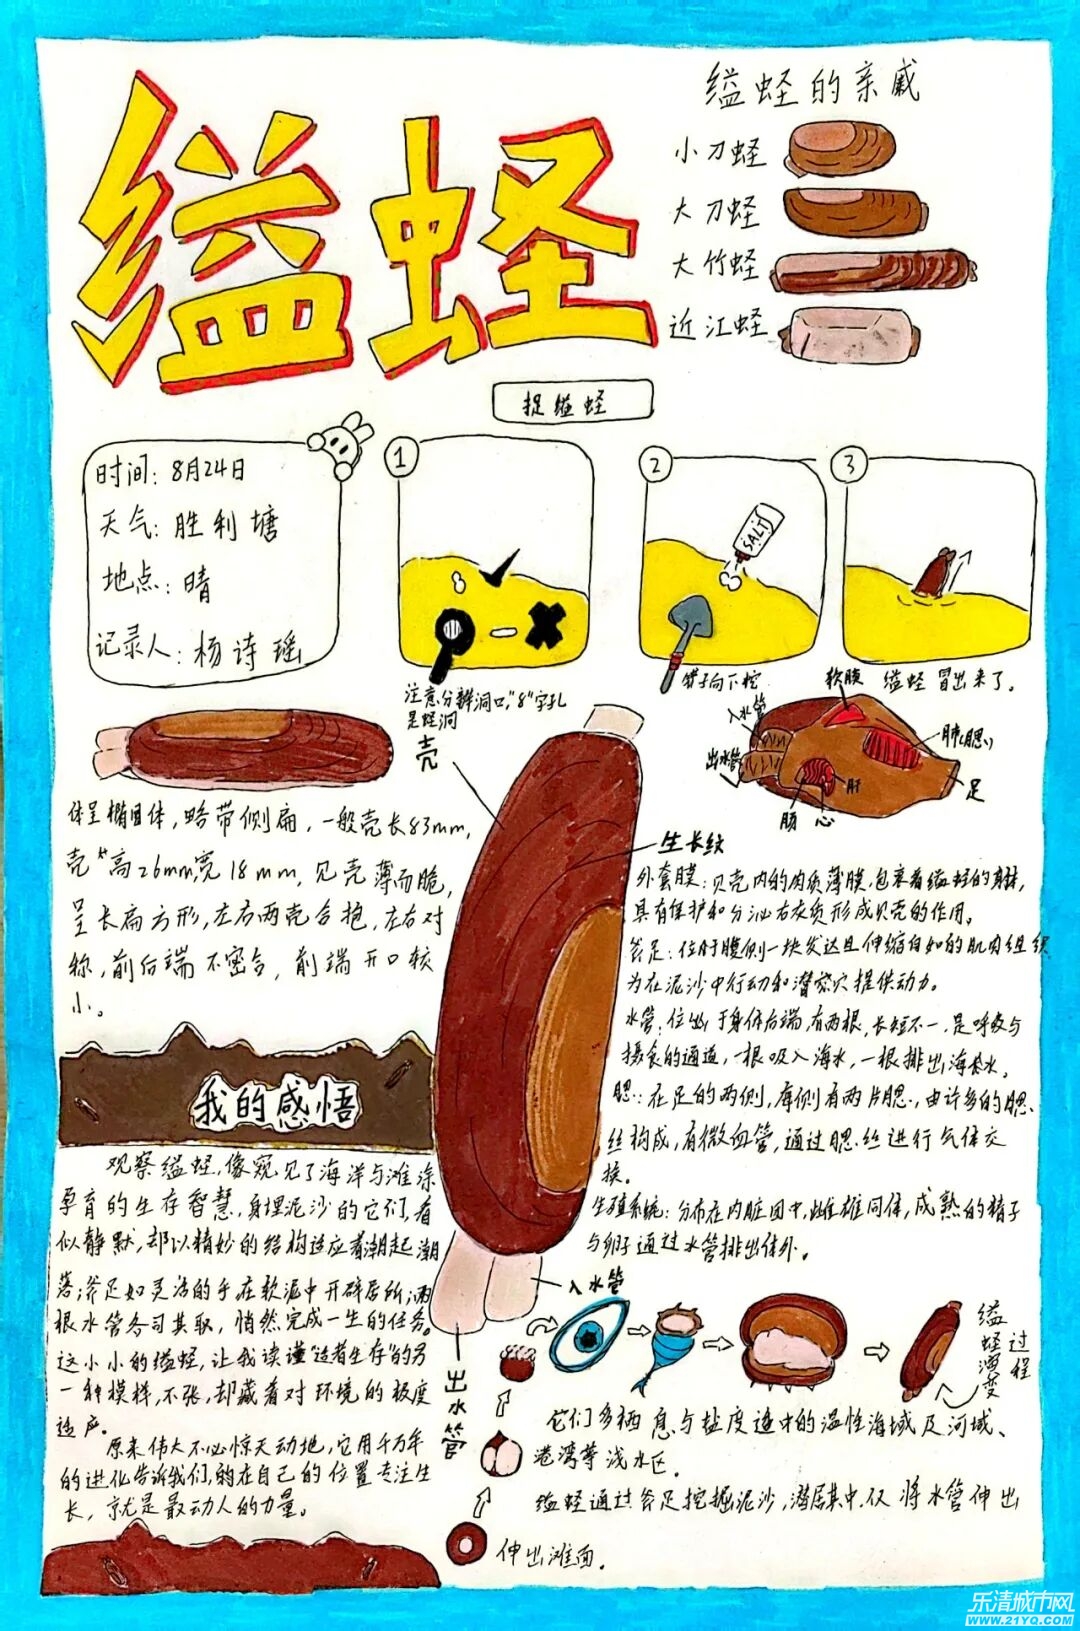 缢蛏
缢蛏的亲戚
小刀蛏
大刀蛏
大竹蛏
近江蛏
捉缢蛏
时间：8月24日
天气：胜利塘
地点：晴
记录人：杨诗瑶
1
注意分辨洞口，"8"字孔
是蛏洞
2
SALT
铲子向下挖
3
缢蛏冒出来了。
壳
生长纹
入水管
出水管
软膜
肺（腮）
肝
足
肠
心
体呈椭圆体，略带侧扁，一般壳长83mm，
壳高26mm，宽18mm，贝壳薄而脆，
呈长扁方形，左右两壳合抱，左右对
称，前后端不密合，前端开口较
小。
外套膜：贝壳内的肉质薄膜，包裹着缢蛏的身体，
具有保护和分泌石衣质形成贝壳的作用。
斧足：位于腹侧一块发达且伸缩自如的肌肉组织
为在泥沙中行动和潜穴提供动力。
水管：位于身体后端，有两根，长短不一，是呼吸与
摄食的通道，一根吸入海水，一根排出海水。
腮：在足的两侧，每侧有两片腮，由许多的腮
丝构成，有微血管，通过腮丝进行气体交
换。
生殖系统：分布在内脏团中，雌雄同体，成熟的精子
与卵子通过水管排出体外。
我的感悟
观察缢蛏，像窥见了海洋与滩涂
孕育的生存智慧，身埋泥沙的它们，看
似静默，却以精妙的结构适应着潮起潮
落；斧足如灵活的手在软泥中开辟居所；两
根水管各司其职，悄然完成一生的任务。
这小小的缢蛏，让我读懂"适者生存"的另
一种模样，不张，却藏着对环境的极度
适应。
原来伟大不必惊天动地，它用千万年
的进化告诉我们，能在自己的位置专注生
长，就是最动人的力量。
入水管
出水管
缢蛏演变
过程
它们多栖息与盐度适中的温性海域及河域、
港湾等浅水区。
缢蛏通过斧足挖掘泥沙，潜居其中，仅将水管伸出
伸出滩面。
乐清城市网
WWW.21YQ.COM